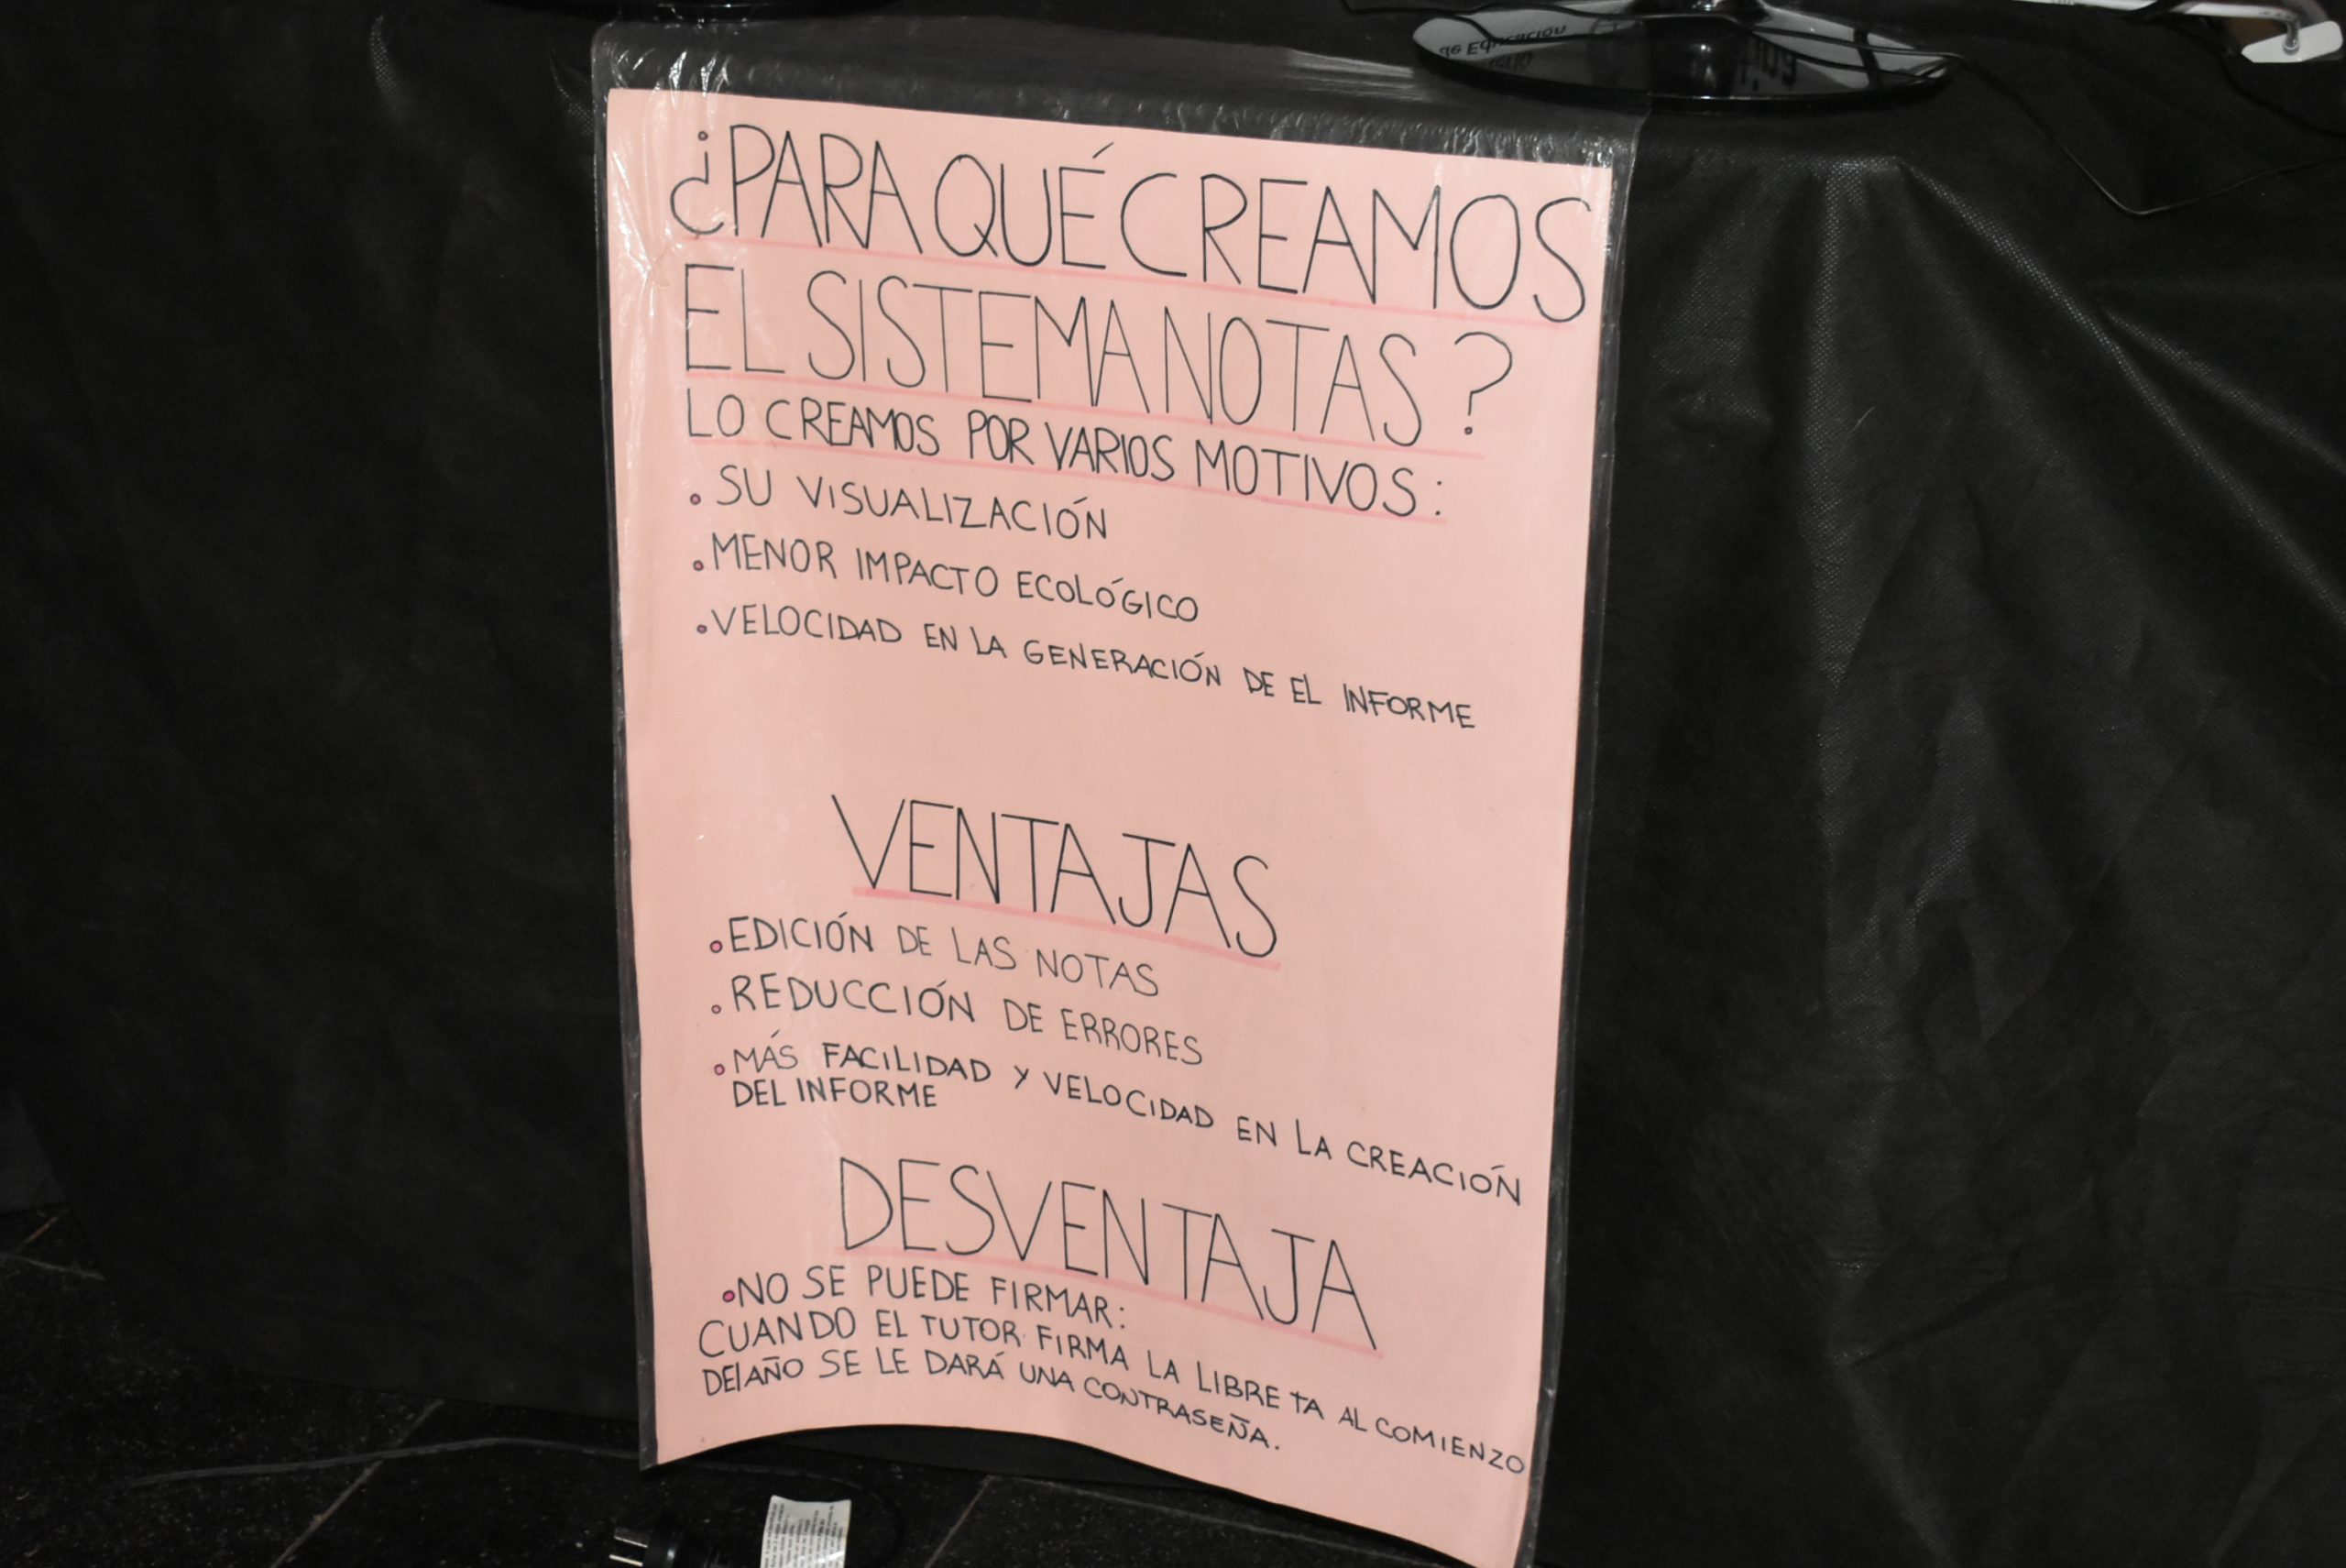 de Educación
¿PARA QUÉ CREAMOS
EL SISTEMA NOTAS?
LO CREAMOS POR VARIOS MOTIVOS:
• SU VISUALIZACIÓN
• MENOR IMPACTO ECOLÓGICO
• VELOCIDAD EN LA GENERACIÓN DE EL INFORME
VENTAJAS
• EDICIÓN DE LAS NOTAS
• REDUCCIÓN DE ERRORES
• MÁS FACILIDAD Y VELOCIDAD EN LA CREACIÓN
DEL INFORME
DESVENTAJA
• NO SE PUEDE FIRMAR:
CUANDO EL TUTOR FIRMA LA LIBRETA AL COMIENZO
DEl AÑO SE LE DARÁ UNA CONTRASEÑA.